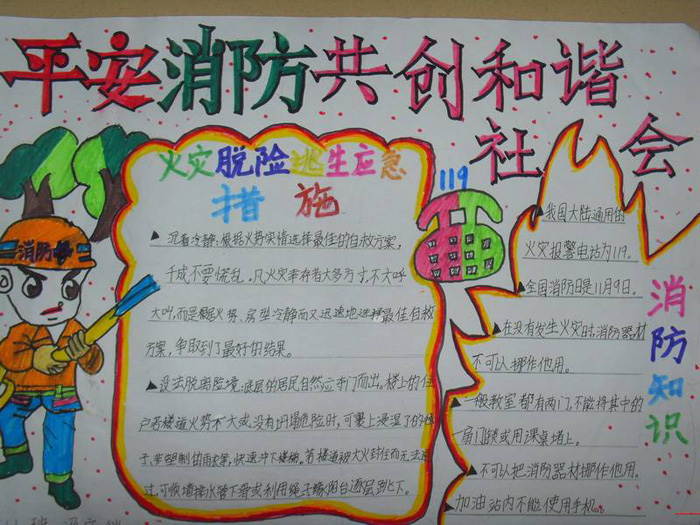 平安消防共创和谐
社会
火灾脱险逃生应急
措施
119
消防
▲沉着冷静:根据火势实情选择最佳的自救方案,
千成不要慌乱。凡火灾幸存者大多方寸,不大呼
大叫,而是根据火势、房型冷静而又迅速地选择最佳自救
方案,争取到了最好的结果。
▲设法脱离险境:底层的居民自然应夺门而出。楼上的住
户若楼道火势不大或没有坍塌危险时,可裹上浸湿了的
快速冲下楼梯。若楼道被大火封住而无法
过,可顺墙排水管下滑或利用绳子缘阳台逐层跳下。
▲我国大陆通用的
火灾报警电话为119。
▲全国消防日是11月9日。
▲在没有发生火灾时消防器材
不可以挪作他用。
▲一般教室都有两门,不能将其中的
一扇门锁或用课桌堵上。
▲不可以把消防器材挪作他用。
▲加油站内不能使用手机。
消防知识